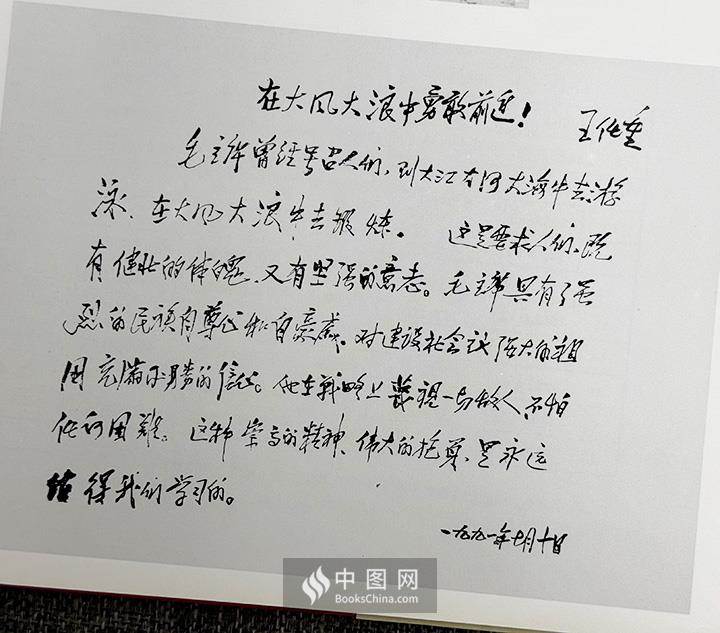 在大风大浪中勇敢前进! 王任重
毛主席曾经号召人们,到大江大河大海中去游
泳、在大风大浪中去锻炼。 这是要求人们,既
有健壮的体魄、又有坚强的意志。毛主席具有强
烈的民族自尊心和自豪感。对建设社会主义强大的祖
国充满必胜的信心。他在战略上藐视一切敌人,不怕
任何困难。这种崇高的精神、伟大的抱负,是永远
值得我们学习的。
一九九一年七月十日
中图网
BooksChina.com